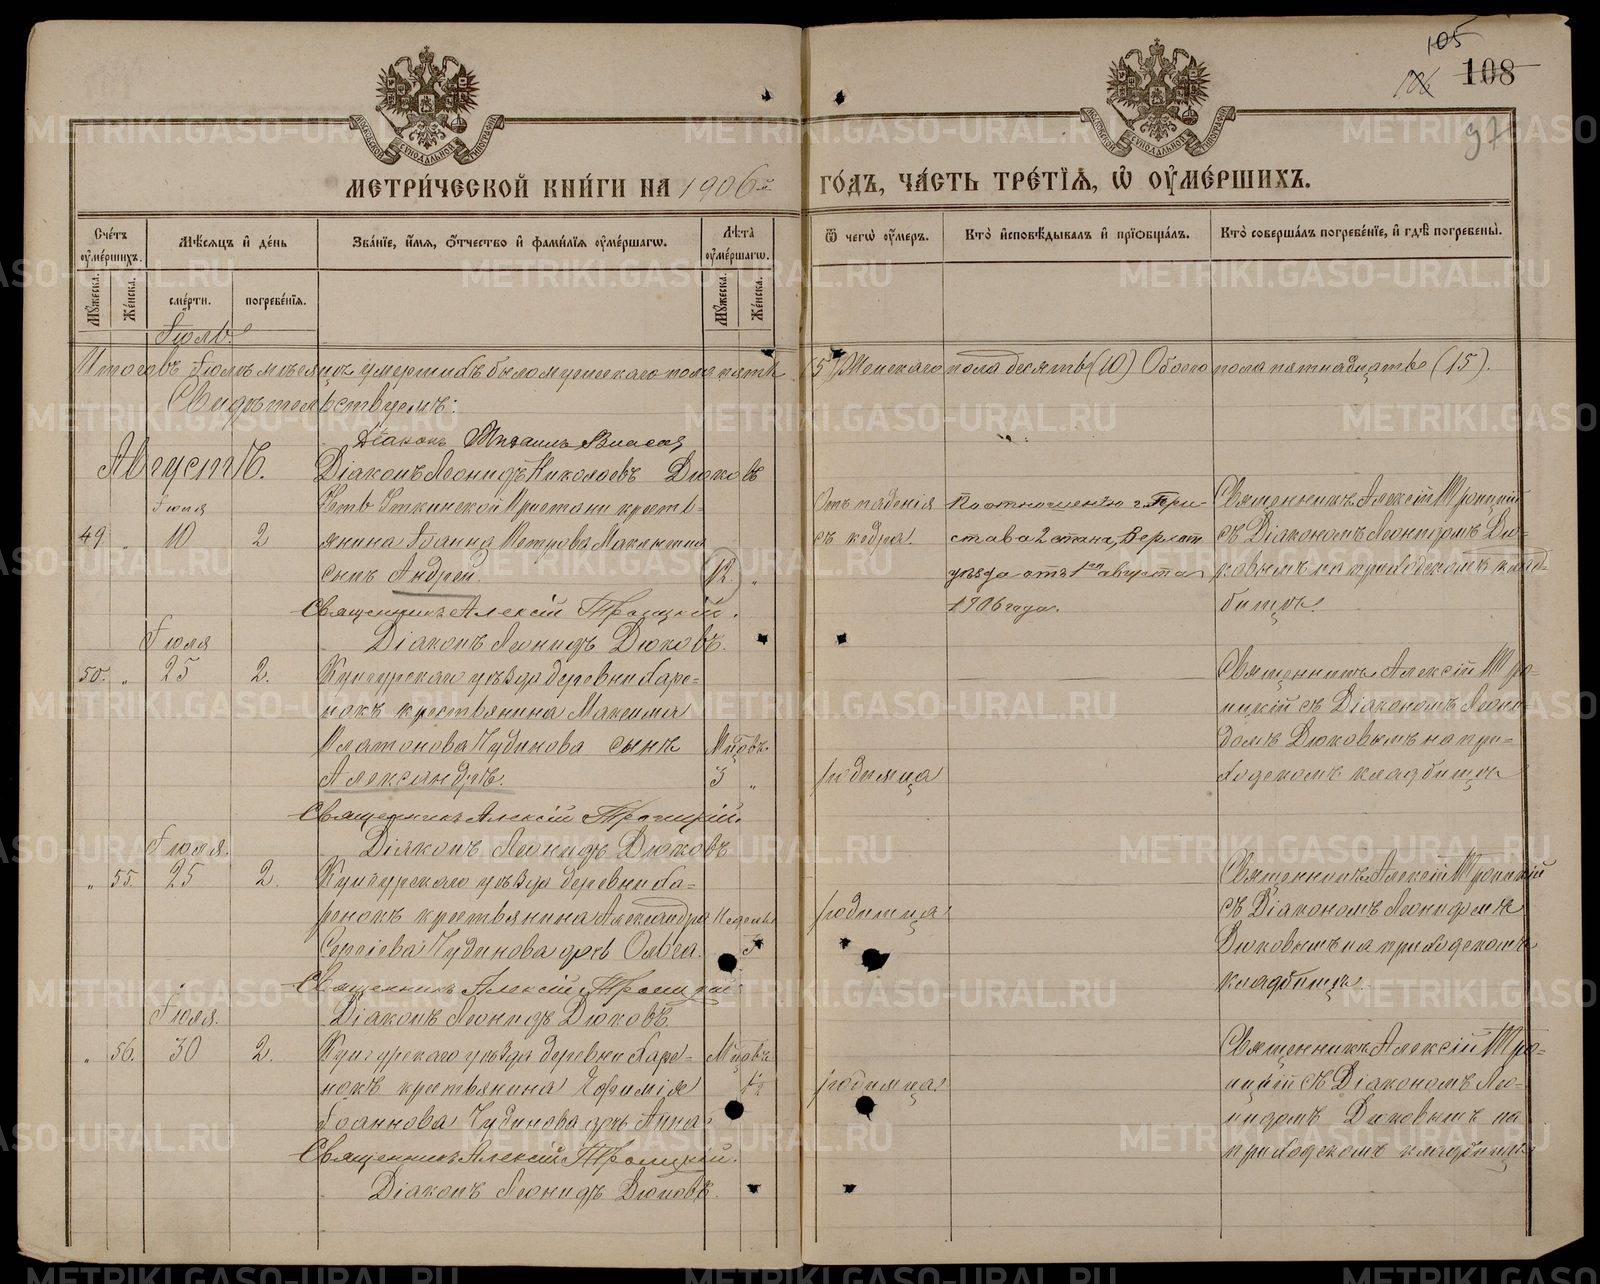 105
106 108
97
МЕТРИ́ЧЕСКОЙ КНИ́ГИ НА 1906й ГО́ДЪ, ЧА́СТЬ ТРЕ́ТІѦ, Ѡ ОУМЕ́РШИХЪ.
Сче́тъ оуме́ршихъ.
Мѣ́сяцъ и де́нь
Зва́ніе, и́мя, о́тчество и фами́лія оуме́ршагѡ.
Лѣ́та оуме́ршагѡ.
Ѿ чегѡ̀ оу́меръ.
Кто̀ и̓сповѣ́дывалъ и прїѡбща́лъ.
Кто̀ соверша́лъ погребе́ніе, и гдѣ̀ погребены̀.
Му́жеска.
Же́нска.
сме́рти.
погребе́нія.
Му́жеска.
Же́нска.
Іюль
Итого въ Іюлѣ мѣсяцѣ умершихъ было мужескаго пола пять (5) Женскаго пола десять (10) Обоего пола пятнадцать (15).
Свидѣтельствуемъ:
Діаконъ Михаилъ
Августъ. Діаконъ Леонидъ Николаевъ Дюковъ
Іюля
49 " 10 2
Уткинской Пристани кресть-
янина Іоанна Петрова
сынъ Андрей. 12 "
Отъ паденія
съ кедра.
По отношенію г. При-
става 2 стана, Верхот
уѣзда отъ 1го августа
1906 года.
Священникъ Алексій Троицкій
съ Діакономъ Леонидомъ Дю-
ковымъ на приходскомъ клад-
бищѣ.
Священникъ Алексій Троицкій.
Діаконъ Леонидъ Дюковъ.
Іюля
50. " 25 2.
Кунгурскаго уѣзда деревни Харе-
нокъ крестьянина Максима
Платонова Чудинова сынъ
Александръ.
Мцовъ.
3 "
родимца
Священникъ Алексій Тро-
ицкій съ Діакономъ Леони-
домъ Дюковымъ на при-
ходскомъ кладбищѣ
Священникъ Алексій Троицкій.
Діаконъ Леонидъ Дюковъ
Іюля.
" 55. 25 2.
Кунгурскаго уѣзда деревни Ха-
ренокъ крестьянина Александра
Сергіева Чудинова дчь Ольга.
Недель
родимца
Священникъ Алексій Троицкій
съ Діакономъ Леонидомъ
Дюковымъ на приходскомъ
кладбищѣ.
Священникъ Алексій Троицкій
Діаконъ Леонидъ Дюковъ.
Іюля.
" 56. 30 2.
Кунгурскаго уѣзда деревни Харе-
нокъ крестьянина Ефимія
Іоаннова Чудинова дчь Анна
Мцовъ
1½
родимца
Священникъ Алексій Тро-
ицкій съ Діакономъ Лео-
нидомъ Дюковымъ на
приходскомъ кладбищѣ
Священникъ Алексій Троицкій.
Діаконъ Леонидъ Дюковъ.
METRIKI.GASO-URAL.RU